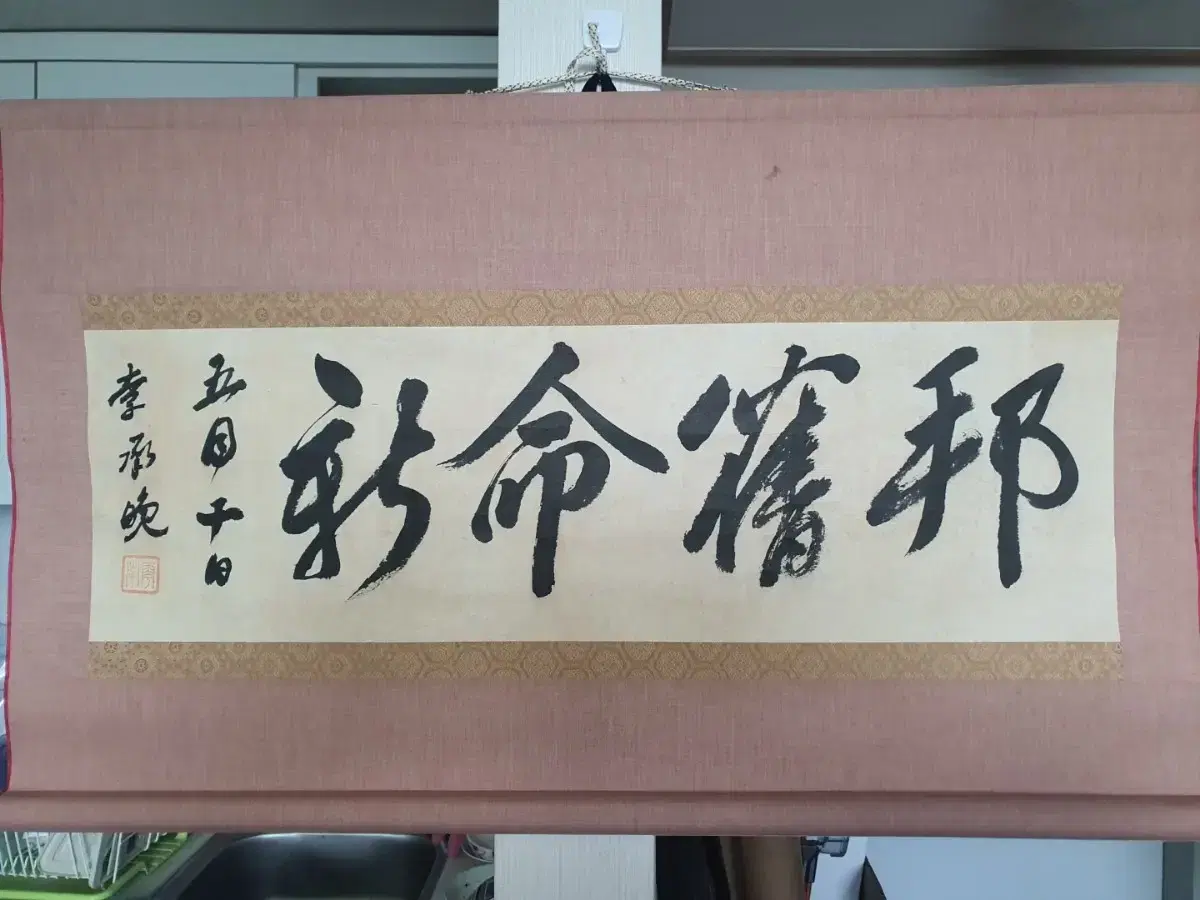 邦舊命新
五月十日
李承晚